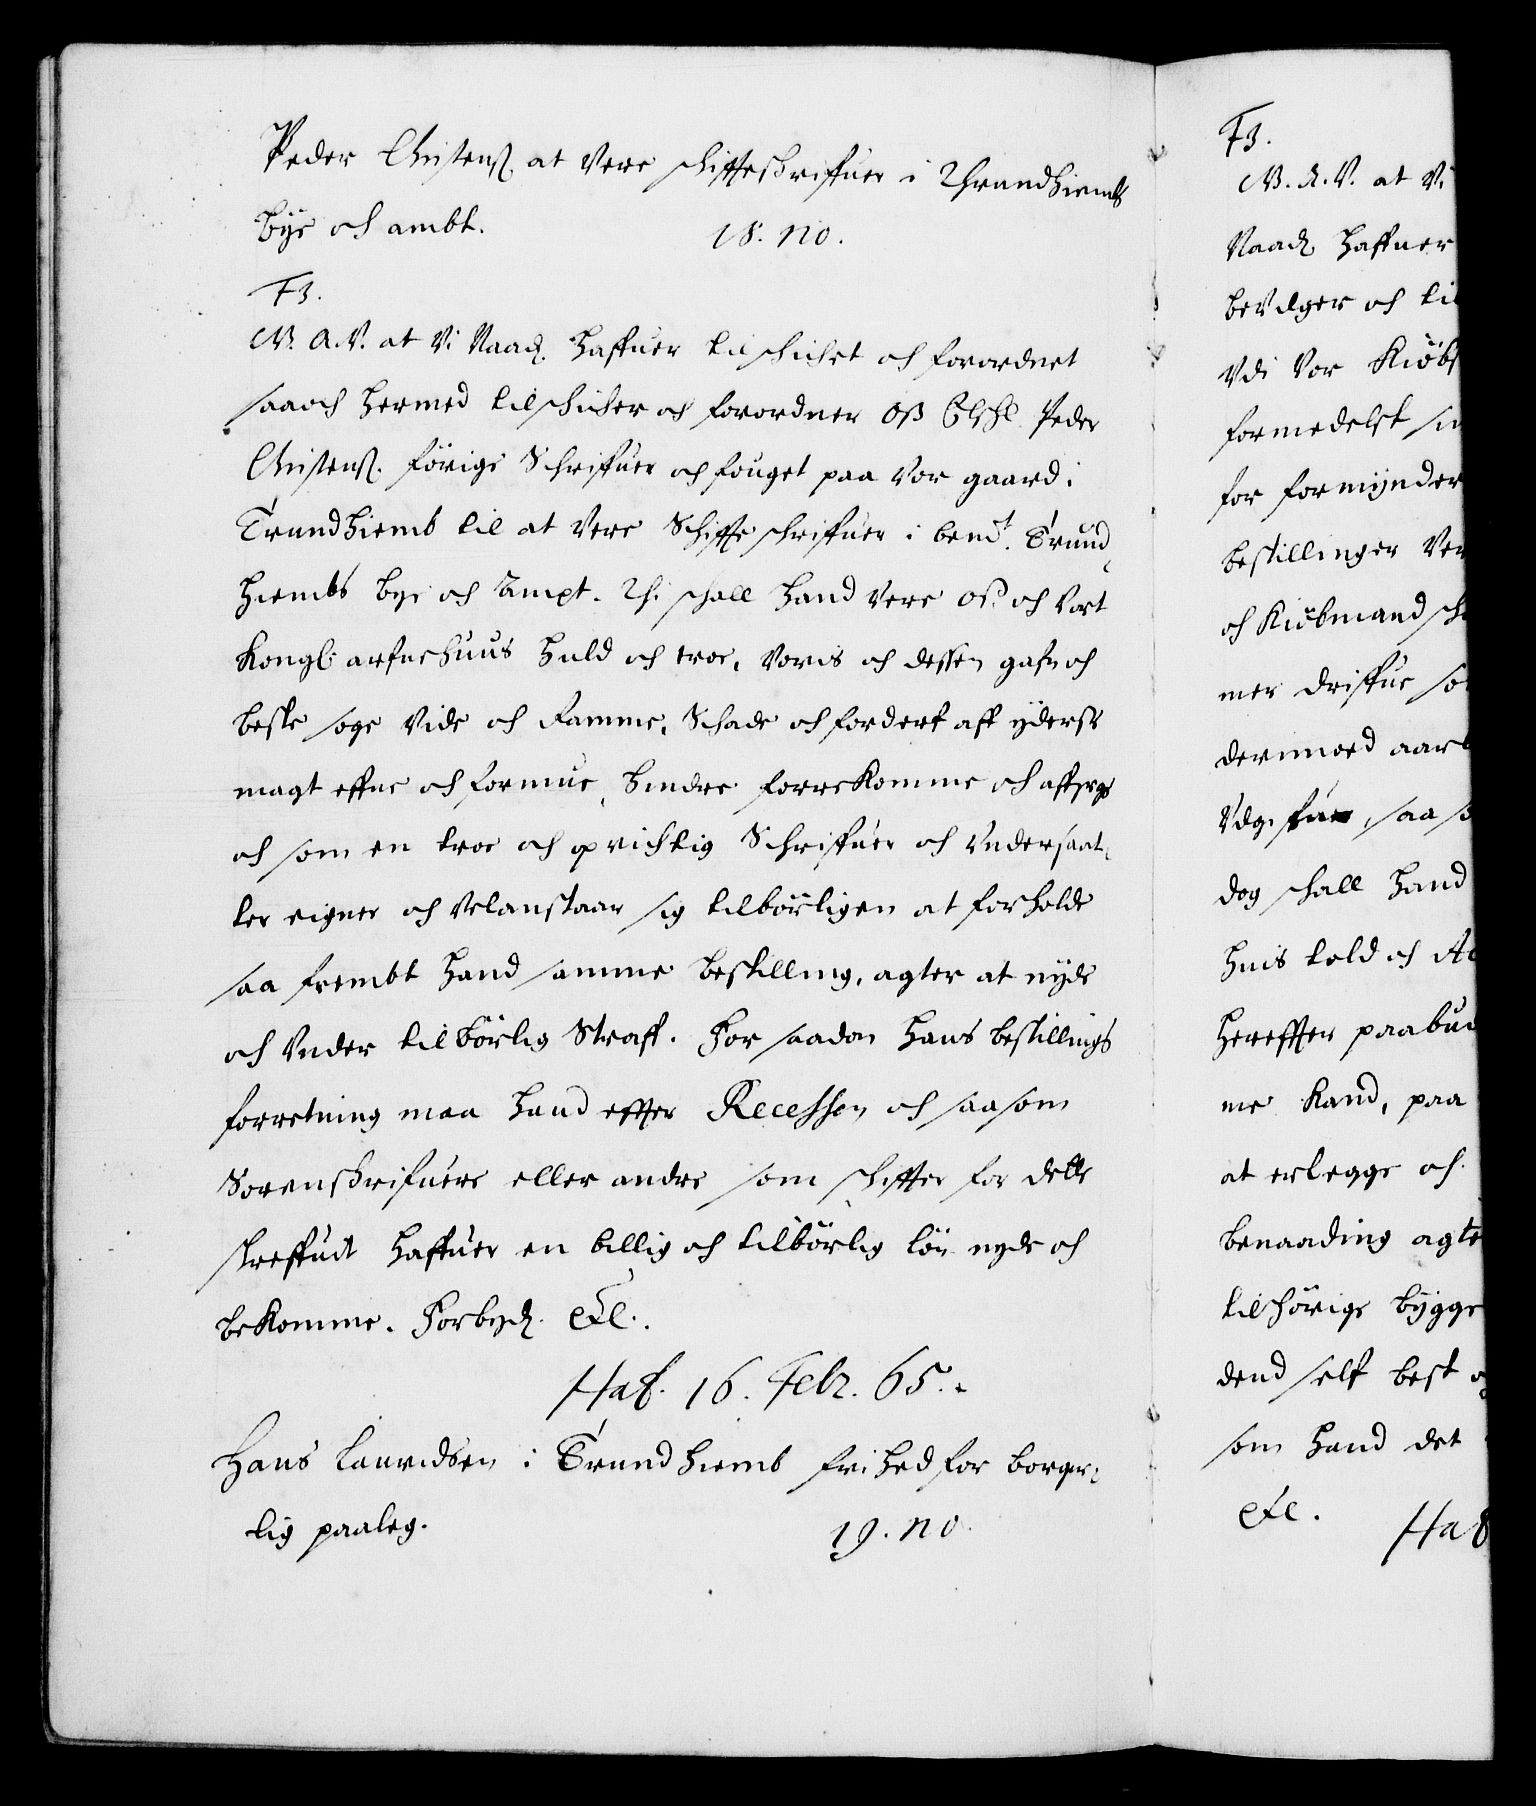 Peder Christens. at vere schiffteschriffuer i Thrundhiembs
bye och ambt. 18. no.
F3.
G. A. V. at Vi Naad. haffuer tilschichet och forordnet
saaoch hermed tilschicher och forordner oss Elshl. Peder
Christens. förige Schriffuer och fouget paa vor gaard i
Trundhiemb til at vere Schiffteschriffuer i bemt. Trund-
hiembs bye och Ampt. Thi schall hand vere oss och vort
Kongl: arfuehuus huld och troe, voris och dessen gafn och
beste söge vide och ramme, Schade och forderf aff yderste
magt effne och formue, hindre forrekomme och affverge
och som en troe och oprichtig Schriffuer och vndersaat-
ter eigner och velanstaar sig tilbörligen at forholde
saa frembt hand samme bestilling, agter at nyde
och vnder tilbörlig Straff. For saadan hans bestillings
forretning maa hand effter Recessen och saasom
Sorenskrifuere eller andre som schiffter for dette
skreffuit haffuer en billig och tilbörlig lön nyde och
bekomme. Forbyd. etc.
Haf. 16. Febr. 65.
Hans Lauridsen i Trundhiemb frihed for borger-
lig paaleg. 19. no.
F3.
G. A. V. at Vi
Naad. haffuer
bevilger och til
vdi vor Kiöbs
formedelst
for formynder
bestillinger
och Kiöbmandsch
mer driffue
dermoed
saa
dog schall hand
huis told och
hereffter paabu
me Kand, paa
at erlegge och
benaading agte
tilhörige bygge
dend self best
som hand det
etc. Haf